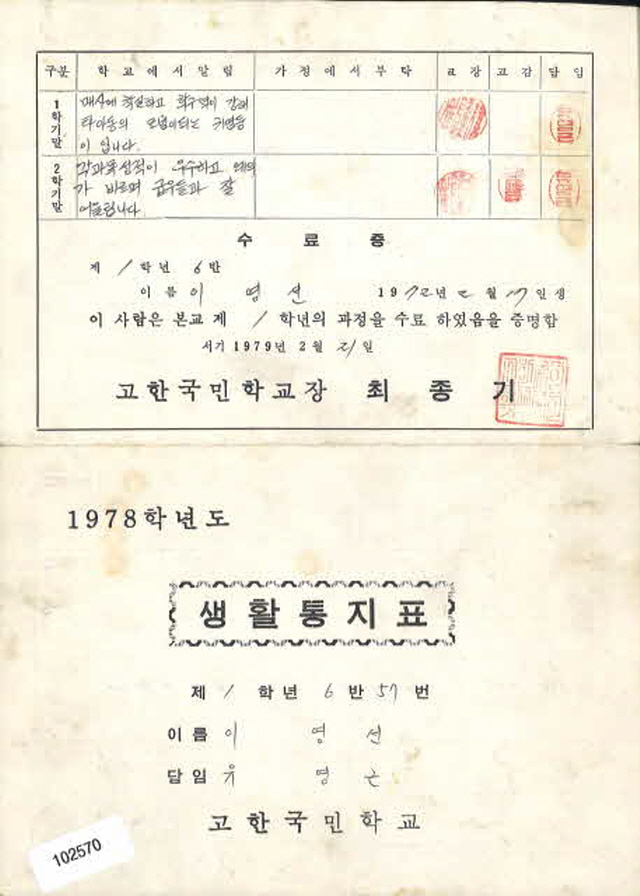 구분 학교에서알림 가정에서부탁 교장 교감 담임
1학기말
매사에 착실하고 학구력이 강해
타아동의 모범이되는 귀염둥
이 입니다.
2학기말
각과목성적이 우수하고 예의
가 바르며 급우들과 잘
어울립니다.
수료증
제 1 학년 6 반
이름 이영선 1972년 2월 17일생
이 사람은 본교 제 1 학년의 과정을 수료 하였음을 증명함
서기 1979년 2월 21일
고한국민학교장 최종기
1978학년도
생활통지표
제 1 학년 6 반 57 번
이름 이영선
담임 유영근
고한국민학교
102570